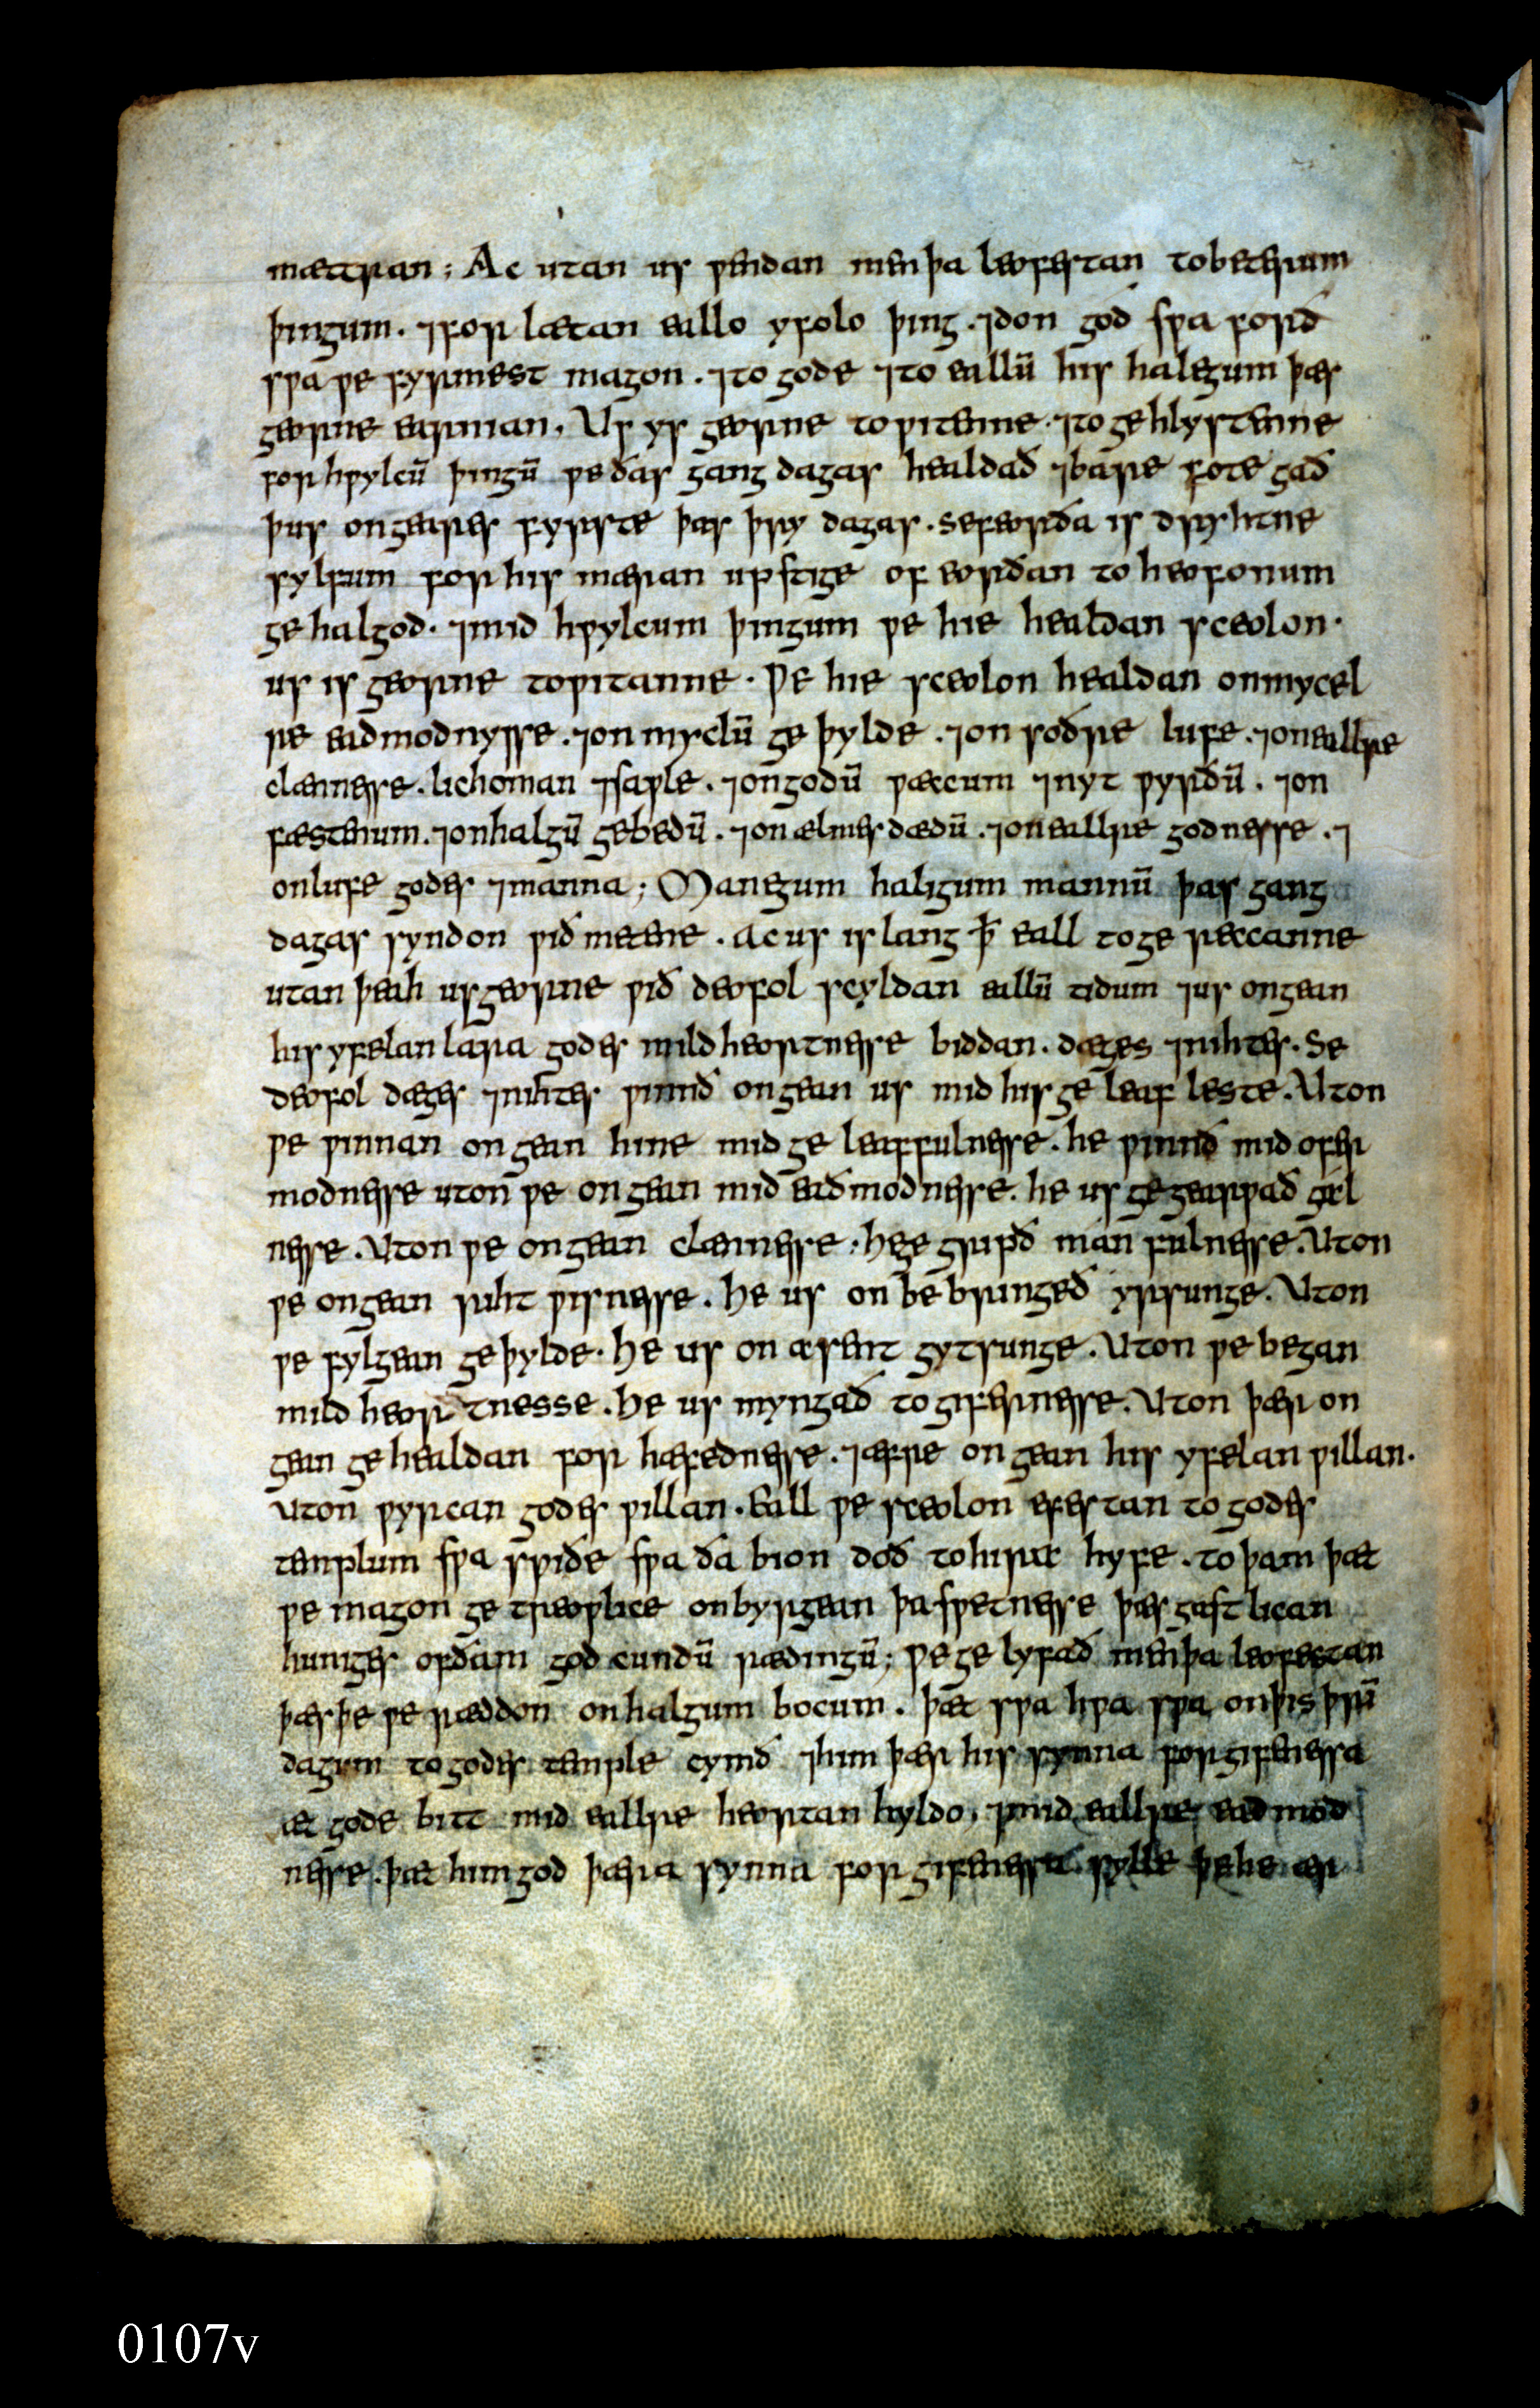 mættran; Ac utan us ƿendan men þa leofestan to beterum
þingum. ⁊ forlætan eallo yfolo þing. ⁊ don god sƿa forð
sƿa ƿe fyrmest magon. ⁊ to gode ⁊ to eallū his halegum þæs
georne earnian. Us ys georne to ƿitenne. ⁊ to gehlystenne
for hƿylcū þingū ƿe ðas gang dagas healdað ⁊ bare fote gað
þus on geares fyrste þæs þry dagas. seo feorða is drihtne
sylfum for his mæran upstige of eorðan to heofonum
ge halgod. ⁊ mid hƿylcum þingum ƿe hie healdan sceolon.
us is georne to ƿitanne. Ƿe hie sceolon healdan on mycel
re eaðmodnysse. ⁊ on myclū ge þylde. ⁊ on soðre lufe. ⁊ on eallre
clænnesse. lichoman ⁊ saƿle. ⁊ on godū ƿæccum ⁊ nyt ƿyrðū. ⁊ on
fæstenum. ⁊ on halgū gebedū. ⁊ on ælmes dædū. ⁊ on eallre godnesse. ⁊
on lufe godes ⁊ manna; Manegum haligum mannū þas gang
dagas syndon ƿið metene. ac us is lang ꝥ eall to ge reccanne
utan þeah us georne ƿið deofol scyldan eallū tidum ⁊ us ongean
his yfelan lara godes mildheortnesse biddan. dæges ⁊ nihtes. Se
deofol dæges ⁊ nihtes ƿinnð ongean us mid his ge leaf leste. Uton
ƿe ƿinnan on gean hine mid ge leaffulnesse. he ƿinnð mid ofer
modnesse uton ƿe on gean mid eaðmodnesse. he us gegearƿað gæl
nesse. Uton ƿe on gean clænnesse. he ge grƿð manfulnesse. Uton
ƿe ongean riht ƿisnesse. He us on be bringeð yrsunge. Uton
ƿe fylgean ge þylde. He us on æsent gytsunge. Uton ƿe began
mild heortnesse. He us myngað to gifernesse. Uton þær on
gean ge healdan for hæfednesse. ⁊ æfre on gean his yfelan ƿillan.
Uton ƿyrcan godes ƿillan. Eall ƿe sceolon efestan to godes
templum sƿa sƿiðe sƿa ða bion doð to hiræ hyfe. to þam þæt
ƿe magon ge treoƿlice onbyrgean þa sƿetnesse þæs gastlican
huniges of ðam god cundū rædingū; Ƿe ge lyfað men þa leofestan
þæs þe ƿe ræddon on halgum bocum. þæt sƿa hƿa sƿa on þis þrū
dagum to godes temple cymð ⁊ him þær his synna forgifenessa
æt gode bitt mid eallre heortan hyldo. ⁊ mid eallre eað mod
nesse. þæt him god þæra synna for gifenessa sylle þe he ær